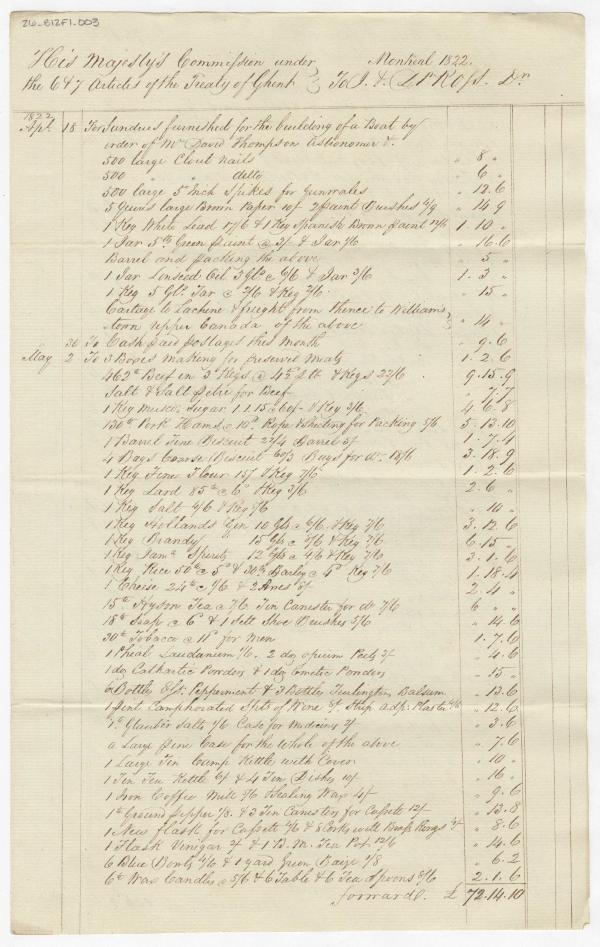 26-B12F1-003
His Majesty's Commission under Montreal 1822.
the 6 & 7 Articles of the Treaty of Ghent To J. & Ross. Dr
1822
Apl. 18 For Sundries furnished for the building of a Boat by
order of Mr David Thompson Astronomer &.
500 large Clout Nails " 8 "
500 " " ditto " 6 "
500 large 5 Inch Spikes for Gunwales " 12.6
5 Quires large Brown Paper 10/ 2 paint Brushes 4/9 " 14.9
1 Keg White Lead 17/6 & 1 Keg Spanish Brown paint 12/6 1.10 "
1 Jar 5 lb Green paint @ 2/ & Jar /6 " 16.6
Barrel and packing the above " 5 "
1 Jar Linseed Oil 3 Gls @ 6/6 & Jar 3/6 1.3 "
1 Keg 5 Gls. Tar @ /6 & Keg 2/6. " 15 "
Cartage to Lachine & freight from thence to Williams
town upper Canada of the above " 14 "
30 To Cash paid postages this month " 9.6
May 2 To 3 Boxes making for preserved Meats 1.2.6
462 lb Beef in 3 Kegs @ 4½ lb & Kegs 22/6 9.15.9
Salt & Salt Petre for Beef " 7.7
1 Keg Musco. Sugar 1.1.15 @ 60/- & Keg 3/6. 4.6.8
130 lb Pork Hams @ 10d Rope & Sheeting for Packing 5/6 5.13.10
1 Barrel Fine Biscuit 22/4 Barrel 5/ 1.7.4
4 Bags Coarse Biscuit 60/3 Bags for do. 18/6 3.18.9
1 Keg Fine Flour 15/ & Keg 7/6 1.2.6
1 Keg Lard 85 lb @ 6d & Keg 3/6 2.6 "
1 Keg Salt 2/6 & Keg 7/6 " 10 "
1 Keg Hollands Gin 10 Gls @ 6/6 & Keg 7/6 3.12.6
1 Keg Brandy 15 Gls @ /6 & Keg 7/6 6.15 "
1 Keg Jama Spirits 12 Gls @ 4/6 & Keg 7/6 3.1.6
1 Keg Rice 50 lb @ 5d & 30 lb Barley @ 4d Keg 7/6 1.18.4
1 Cheese 24 lb @ 1/6 & 2 8/ 2.4 "
15 lb Hyson Tea @ 7/6 Tin Canester for do 7/6 6 " "
18 lb Soap @ 6d & 1 Sett Shoe Brushes 5/6 " 14.6
30 lb Tobacco @ 11d for Men 1.7.6
1 Pheal Laudanum 1/6. 2 dz opium Peels 3/ " 4.6
1 dz Cathartic Powders & 1 dz Emetic Powders " 15 "
6 Bottles Ess: Pepperment & 3 Bottles Turlington Balsam " 13.6
1 pint Camphorated Spts of Wine 8/. Strip adp: Plaster 4/6 " 12.6
1 lb Glauber Salts 1/6 Case for Medicines 2/ " 3.6
a Large Pine Case for the Whole of the above " 7.6
1 Large Tin Camp Kettle with Cover " 10 "
1 Tin Tea Kettle 6/ & 4 Tin Dishes 10/ " 16 "
1 Iron Coffee Mill 5/6 Sealing Wax 4/ " 9.6
1 lb Ground pepper 1/8. & 3 Tin Canesters for Cassette 12/ " 13.8
1 New flask for Cassette 4/6 & 8 Corks with Brass Rings 4/ " 8.6
1 Flask Vinegar 2/ & 1 B. M. Tea Pot 12/6 " 14.6
6 Blue Bowls 4/6 & 1 yard Green Baize 1/8 " 6.2
6 lb Wax Candles @ 5/6 & 6 Table & 6 Tea Spoons 8/6 2.1.6
forward. £ 72.14.10